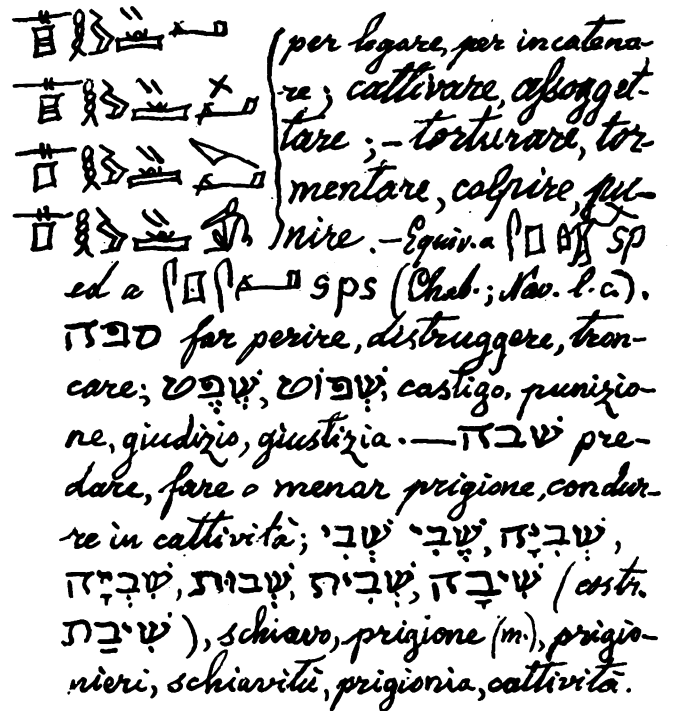 per legare, per incatena-
re; cattivare, assogget-
tare ;– torturare, tor-
mentare, colpire, pu-
nire .– Equiv. a sp
ed a sps (Chab.; Nav. l. c.).
ספה far perire, distruggere, tron-
care; שְׁפוֹט, שֶׁפֶט, castigo, punizio-
ne, giudizio, giustizia. — שׁבה pre-
dare, fare o menar prigione, condur-
re in cattività; שְׁבִי, שֶׁבִי, שִׁבְיָה,
שִׁיבָה, שְׁבִית, שְׁבוּת, שִׁבְיָה (costr.
שִׁיבַת), schiavo, prigione (m.), prigio-
nieri, schiavitù, prigionia, cattività.